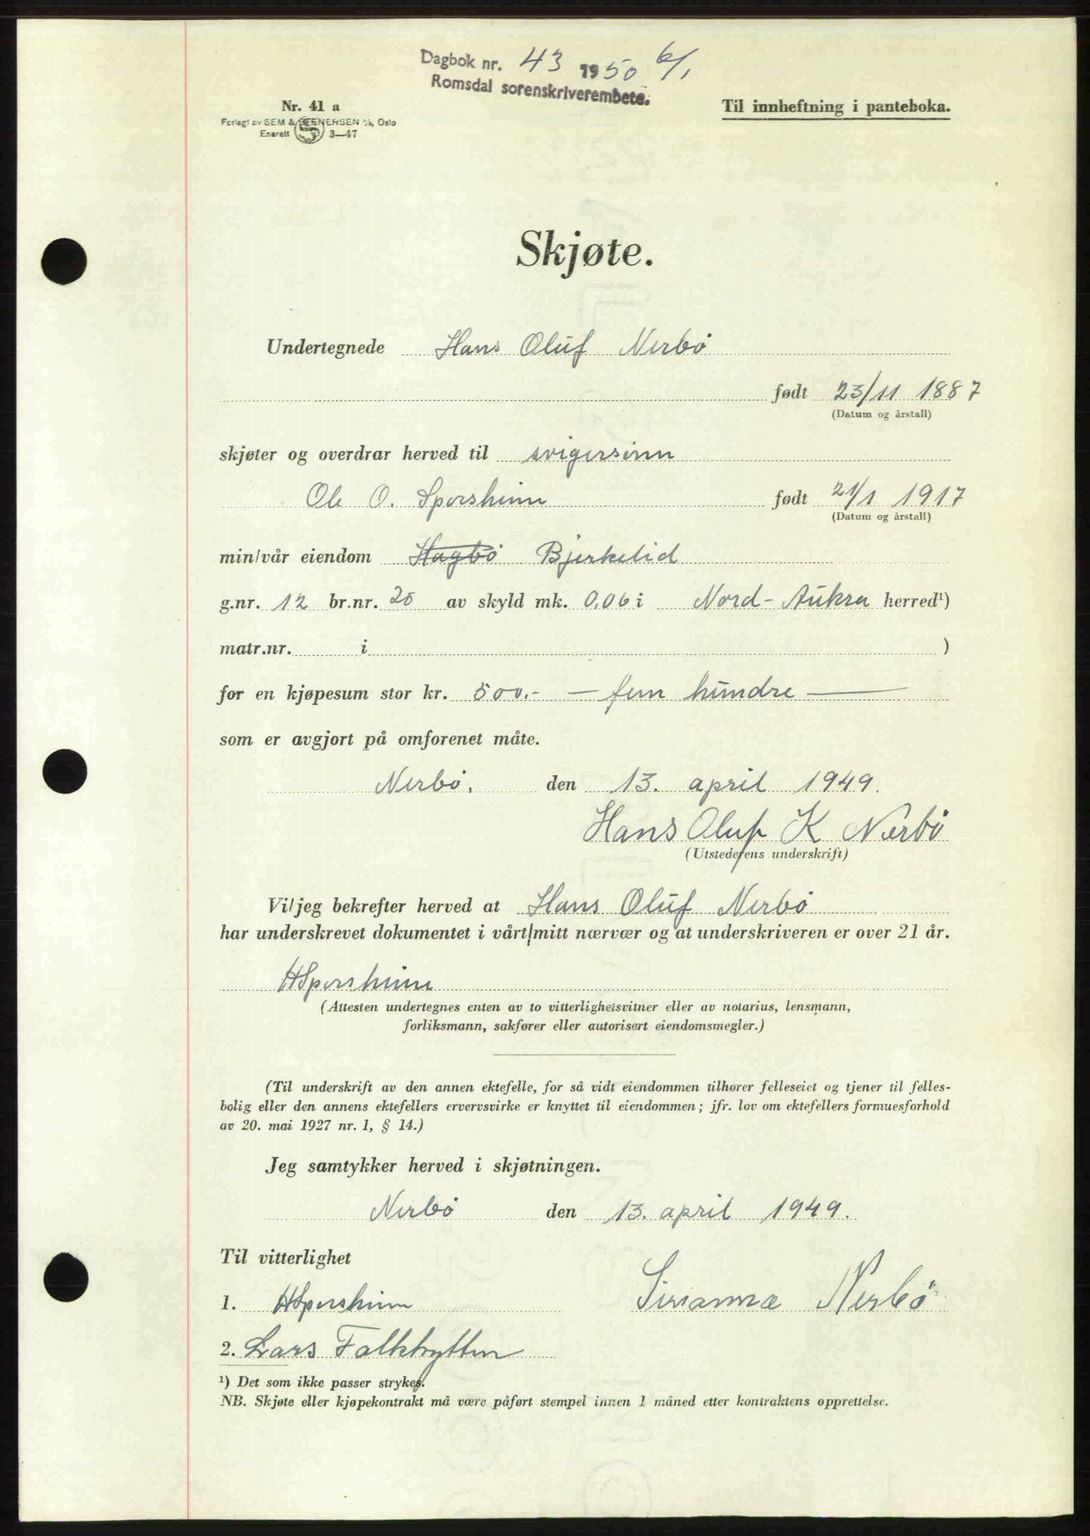 Dagbok nr. 43 1950 6/1
Romsdal sorenskriverembete.
Nr. 41 a
Til innheftning i panteboka.
Forlagt av SEM & STENERSEN A/S, Oslo
Enerett 3—47
Skjøte.
Undertegnede Hans Oluf Nerbø
født 23/11 1887
(Datum og årstall)
skjøter og overdrar herved til svigersønn
Ole O. Sporsheim født 21/1 1917
(Datum og årstall)
min/vår eiendom Hagbø Bjerkelid
g.nr. 12 br.nr. 20 av skyld mk. 0,06 i Nord-Aukra herred¹)
matr.nr. i )
for en kjøpesum stor kr. 500.- — fem hundre —
som er avgjort på omforenet måte.
Nerbø. den 13. april 1949.
Hans Oluf K Nerbö
(Utstederens underskrift)
Vi/jeg bekrefter herved at Hans Oluf Nerbø
har underskrevet dokumentet i vårt/mitt nærvær og at underskriveren er over 21 år.
HSporsheim
(Attesten undertegnes enten av to vitterlighetsvitner eller av notarius, lensmann,
forliksmann, sakfører eller autorisert eiendomsmegler.)
(Til underskrift av den annen ektefelle, for så vidt eiendommen tilhører felleseiet og tjener til felles-
bolig eller den annens ektefellers ervervsvirke er knyttet til eiendommen; jfr. lov om ektefellers formuesforhold
av 20. mai 1927 nr. 1, § 14.)
Jeg samtykker herved i skjøtningen.
Nerbø den 13. april 1949.
Til vitterlighet
1. HSporsheim Nerbö
2. Lars Falkhytten
¹) Det som ikke passer strykes.
NB. Skjøte eller kjøpekontrakt må være påført stempel innen 1 måned etter kontraktens opprettelse.